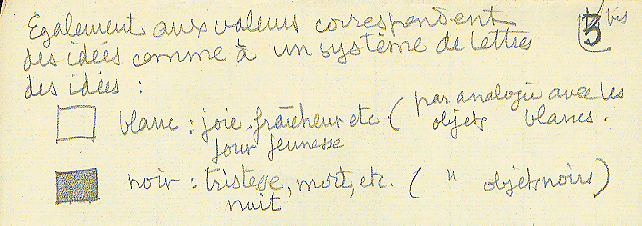 Également aux valeurs correspondent
3 bis
des idées comme à un système de lettres
des idées :
blanc : joie. fraîcheur etc (par analogie avec les
jour jeunesse
objets blancs.
noir : tristesse, mort, etc. ( " objets noirs)
nuit